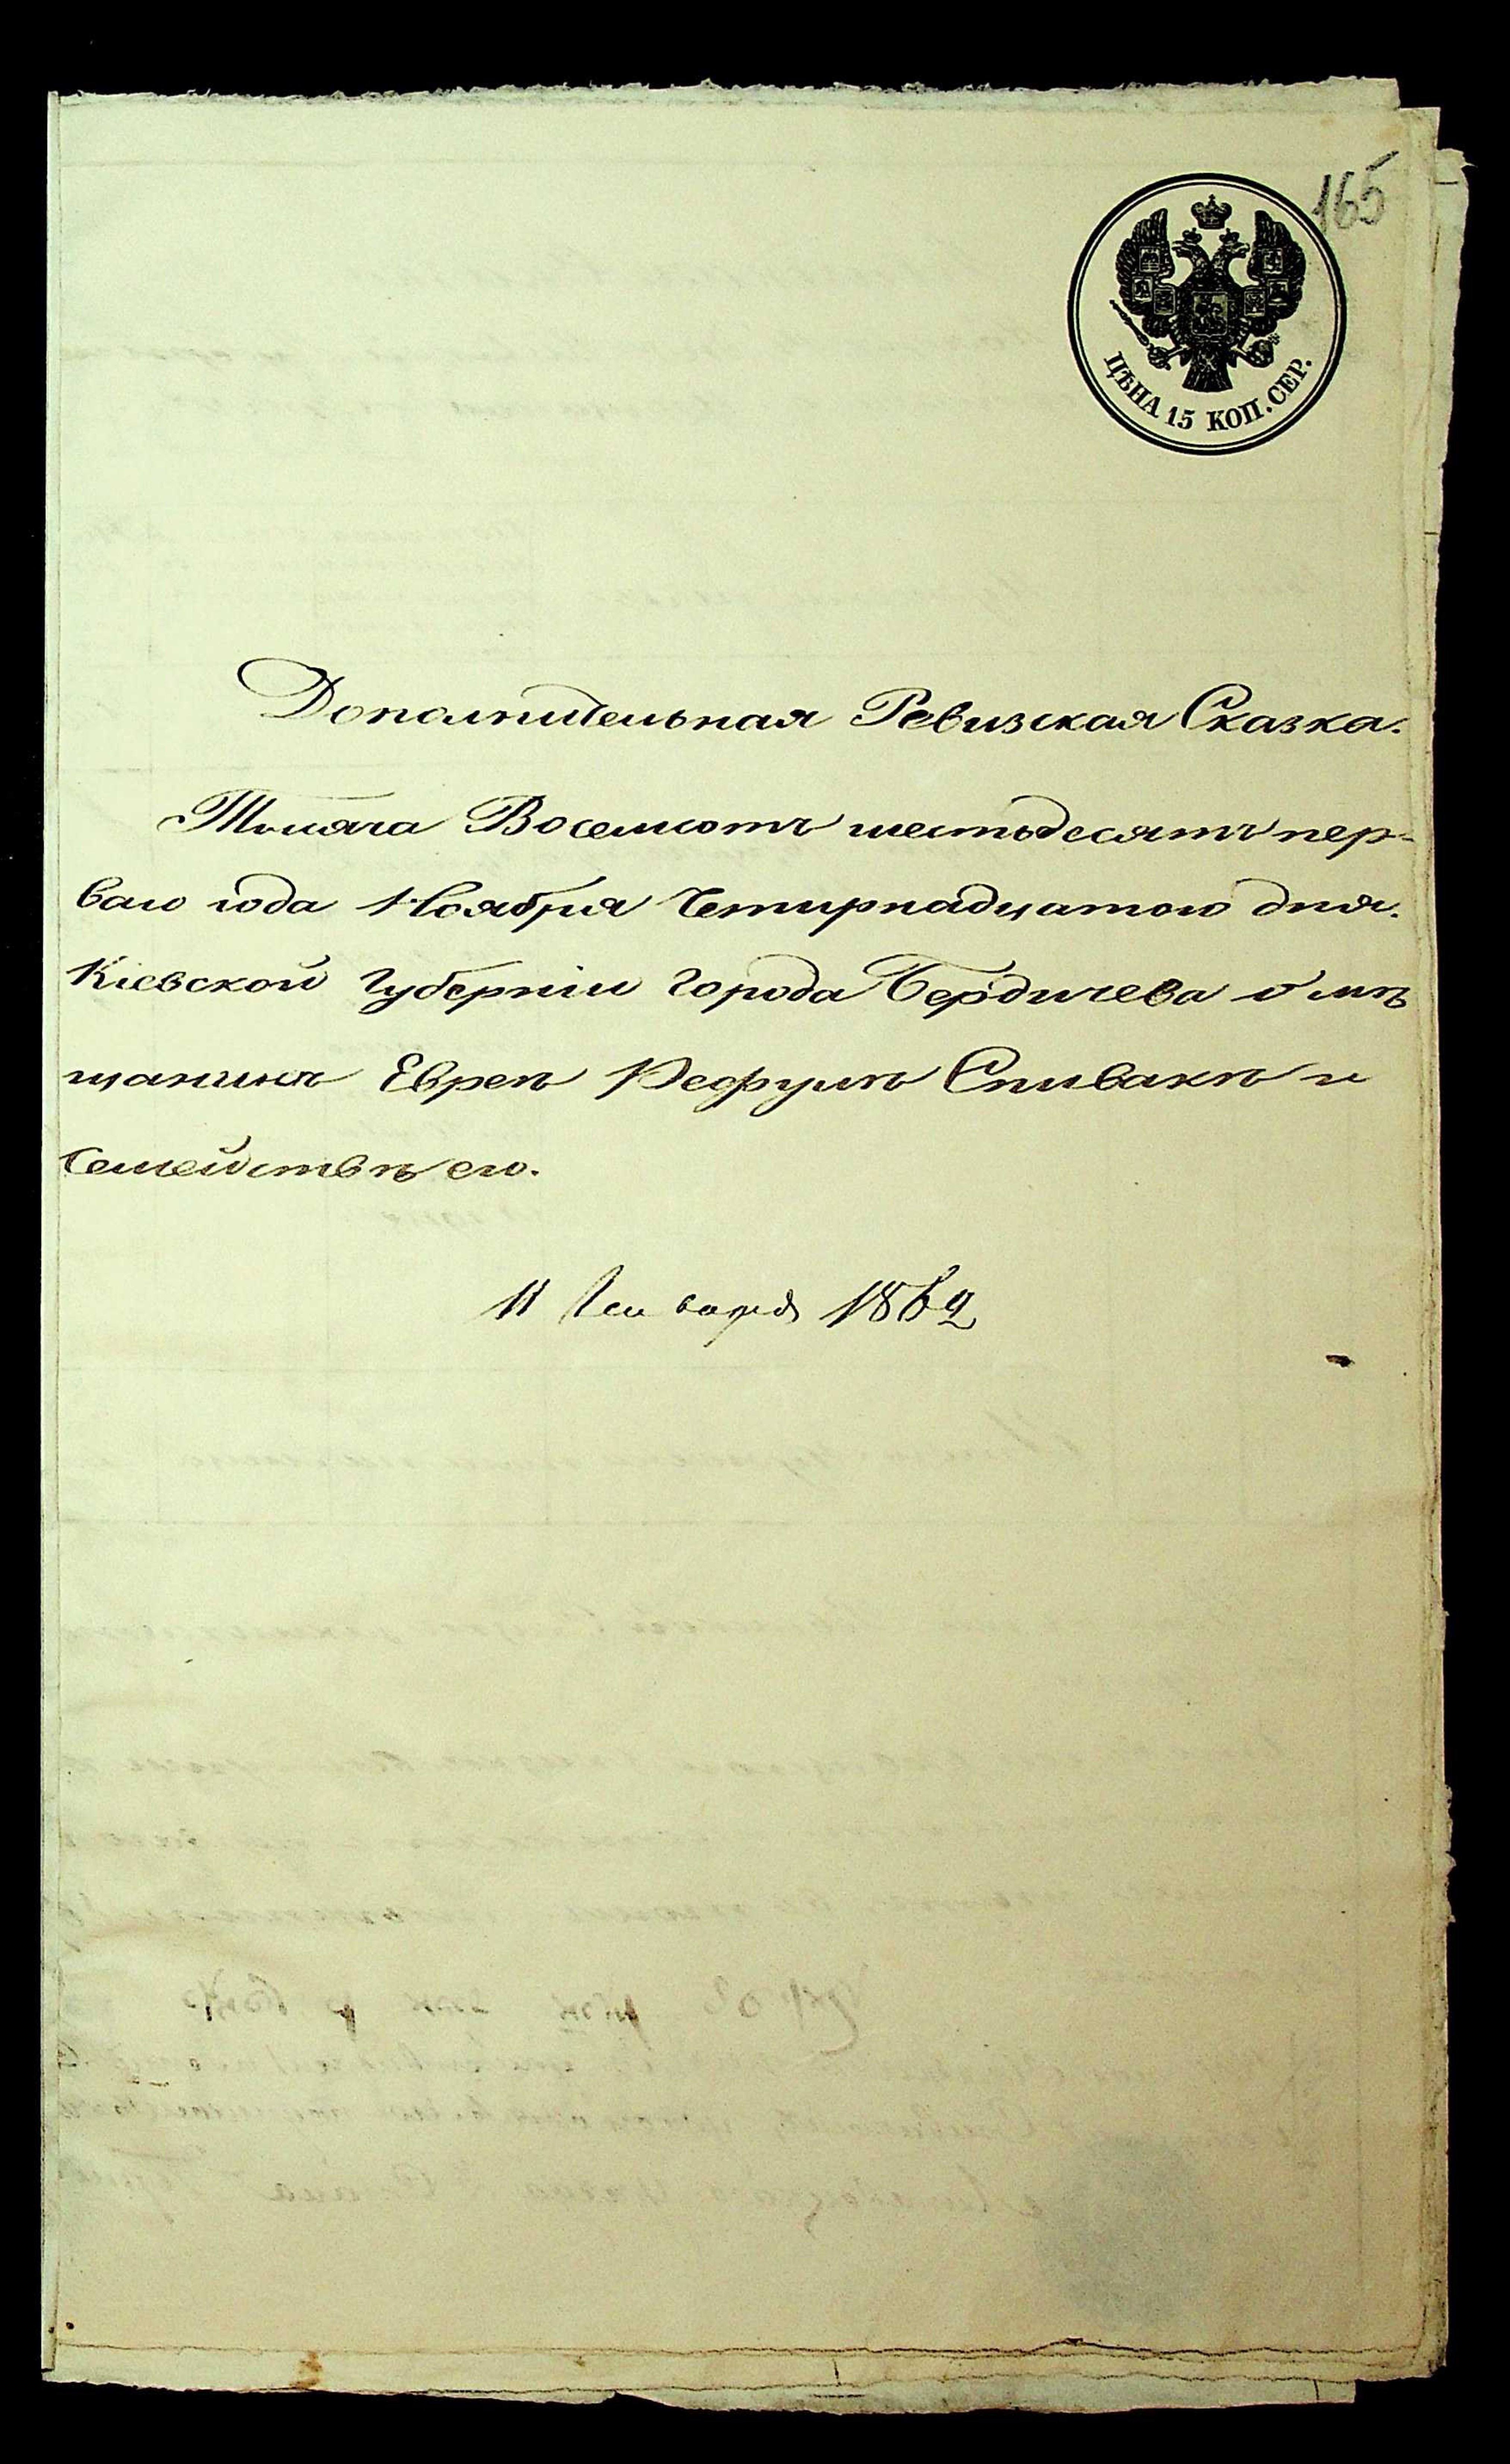 165
ЦѢНА 15 КОП. СЕР.
Дополнительная Ревизская Сказка.
Тысяча Восемсотъ шестьдесятъ пер-
ваго года Ноября Четирнадцатого дня.
Кіевской Губерніи Города Бердичева о мѣ
щанинѣ Евреѣ Рефулѣ Спивакѣ и
Семействѣ его.
11 Генваря 1862